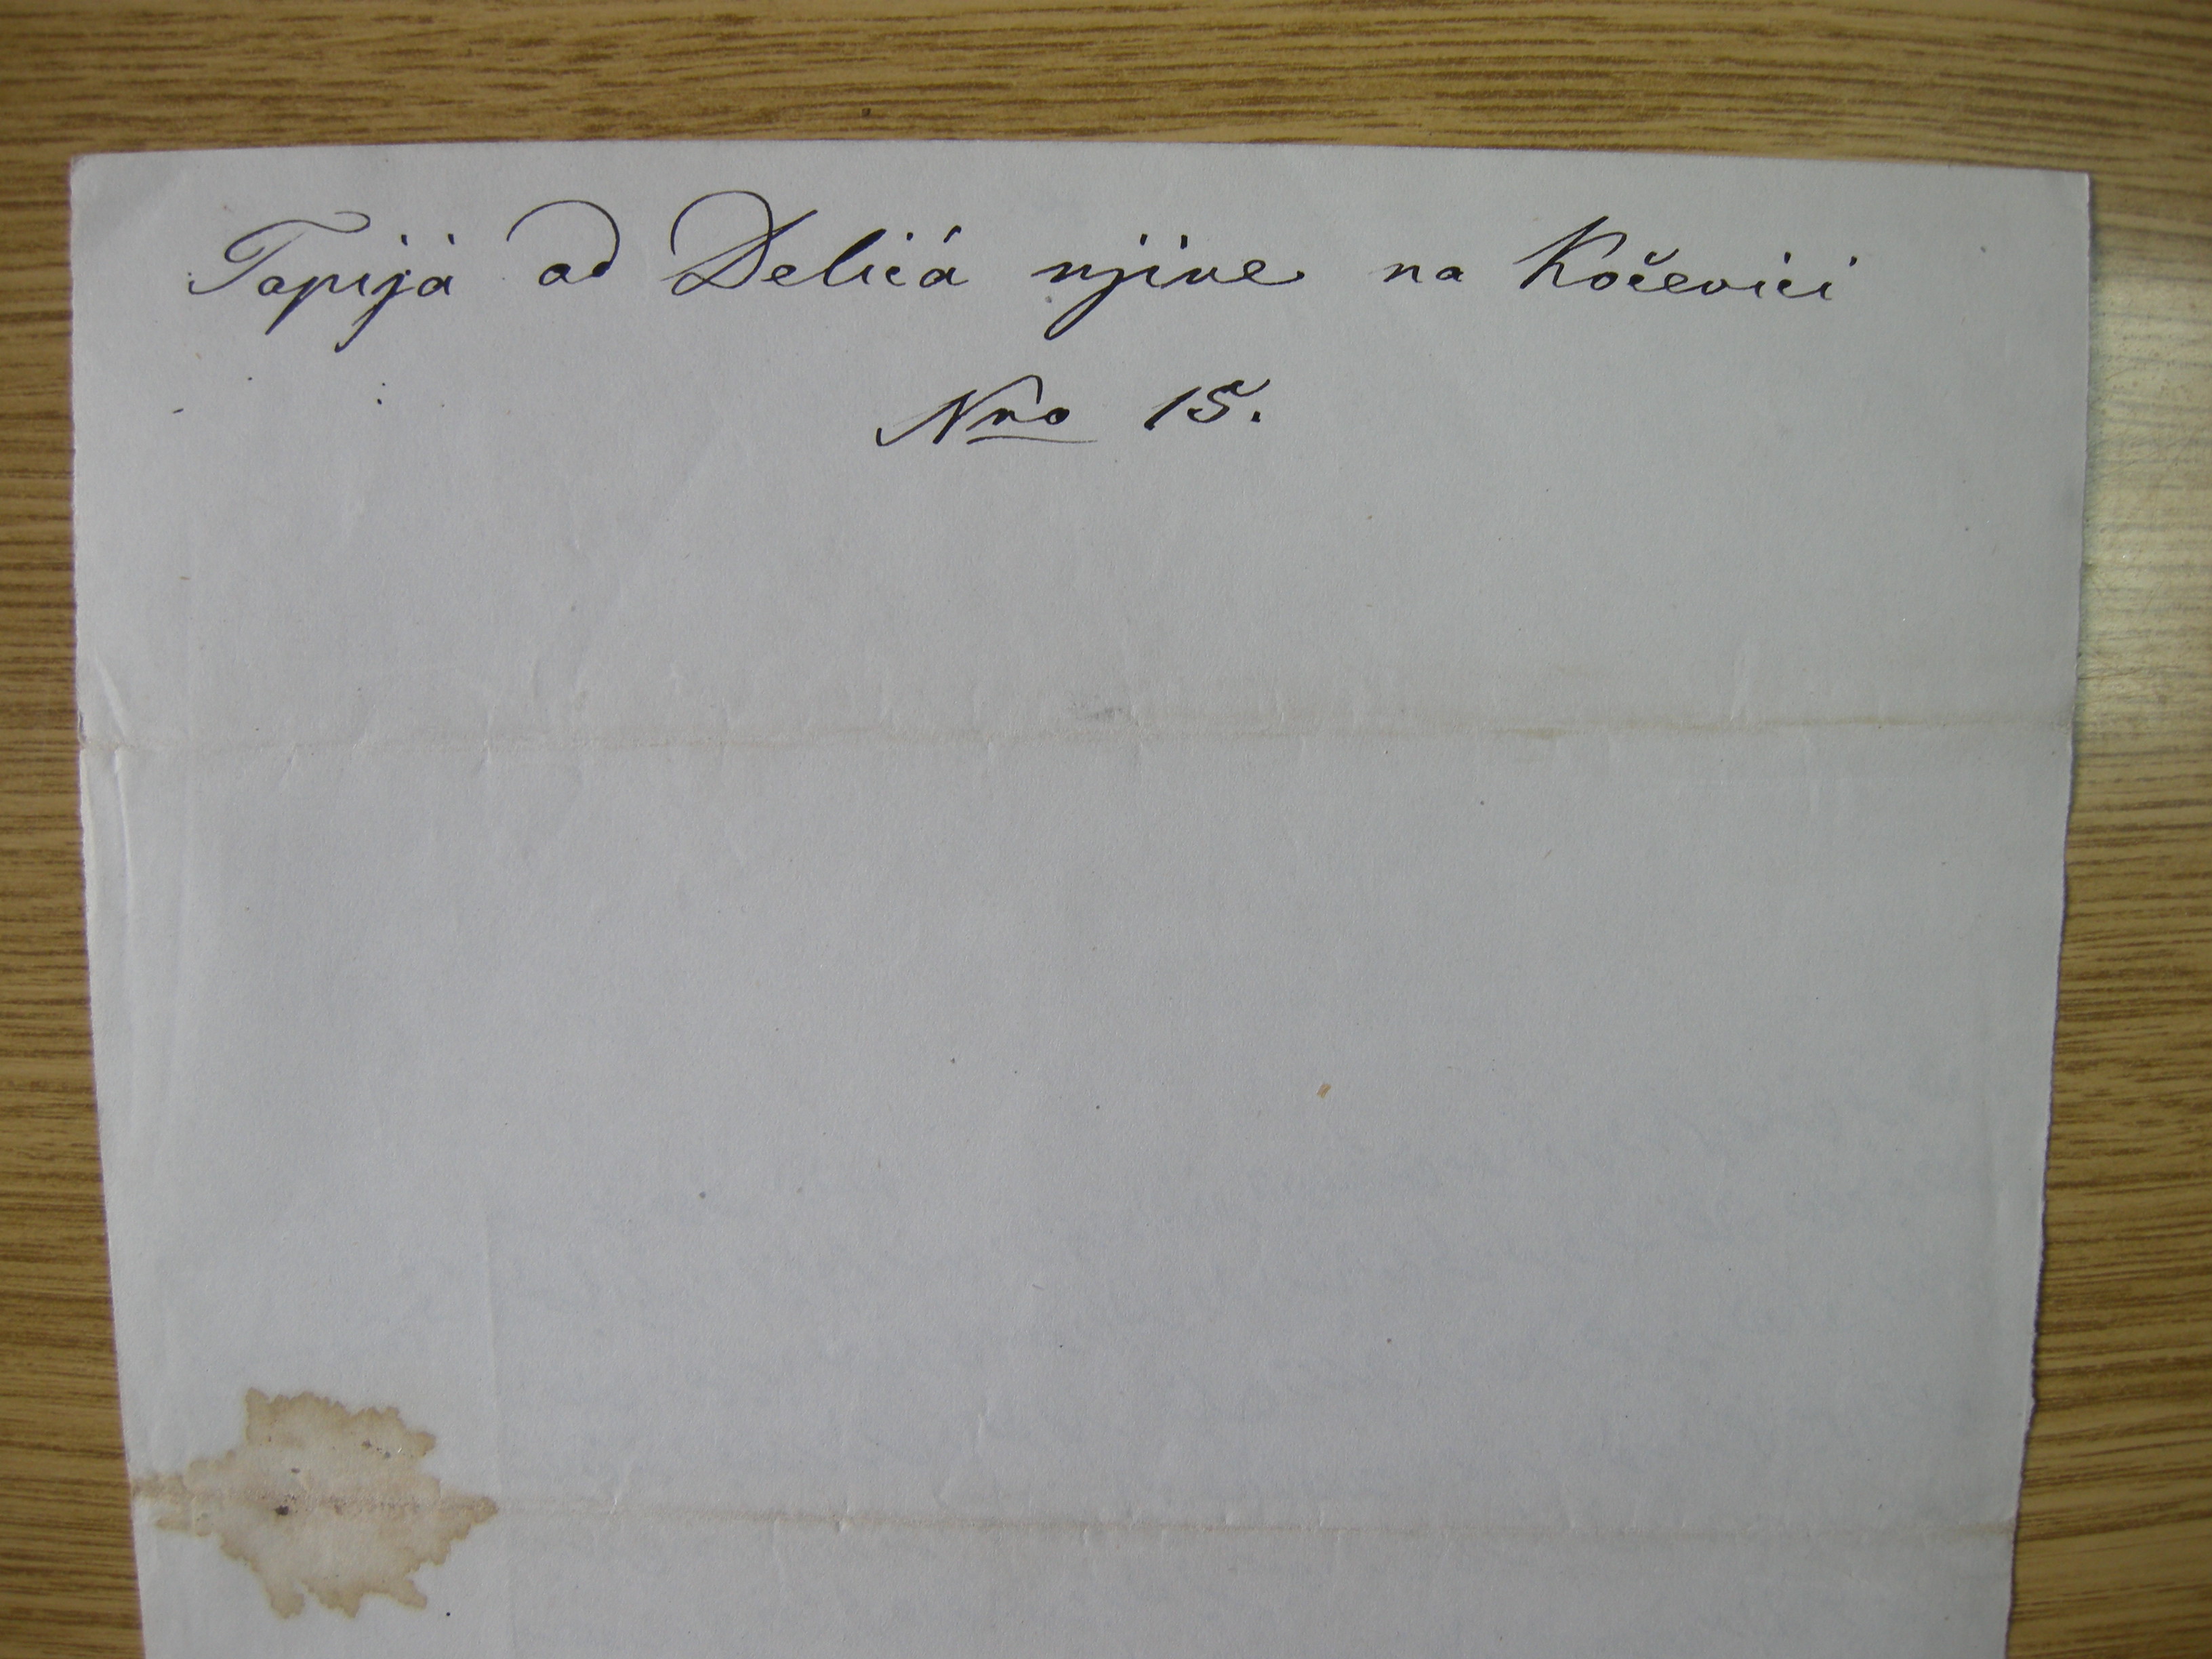 Tapija od Delića njive na Kočevici
Nro 15.